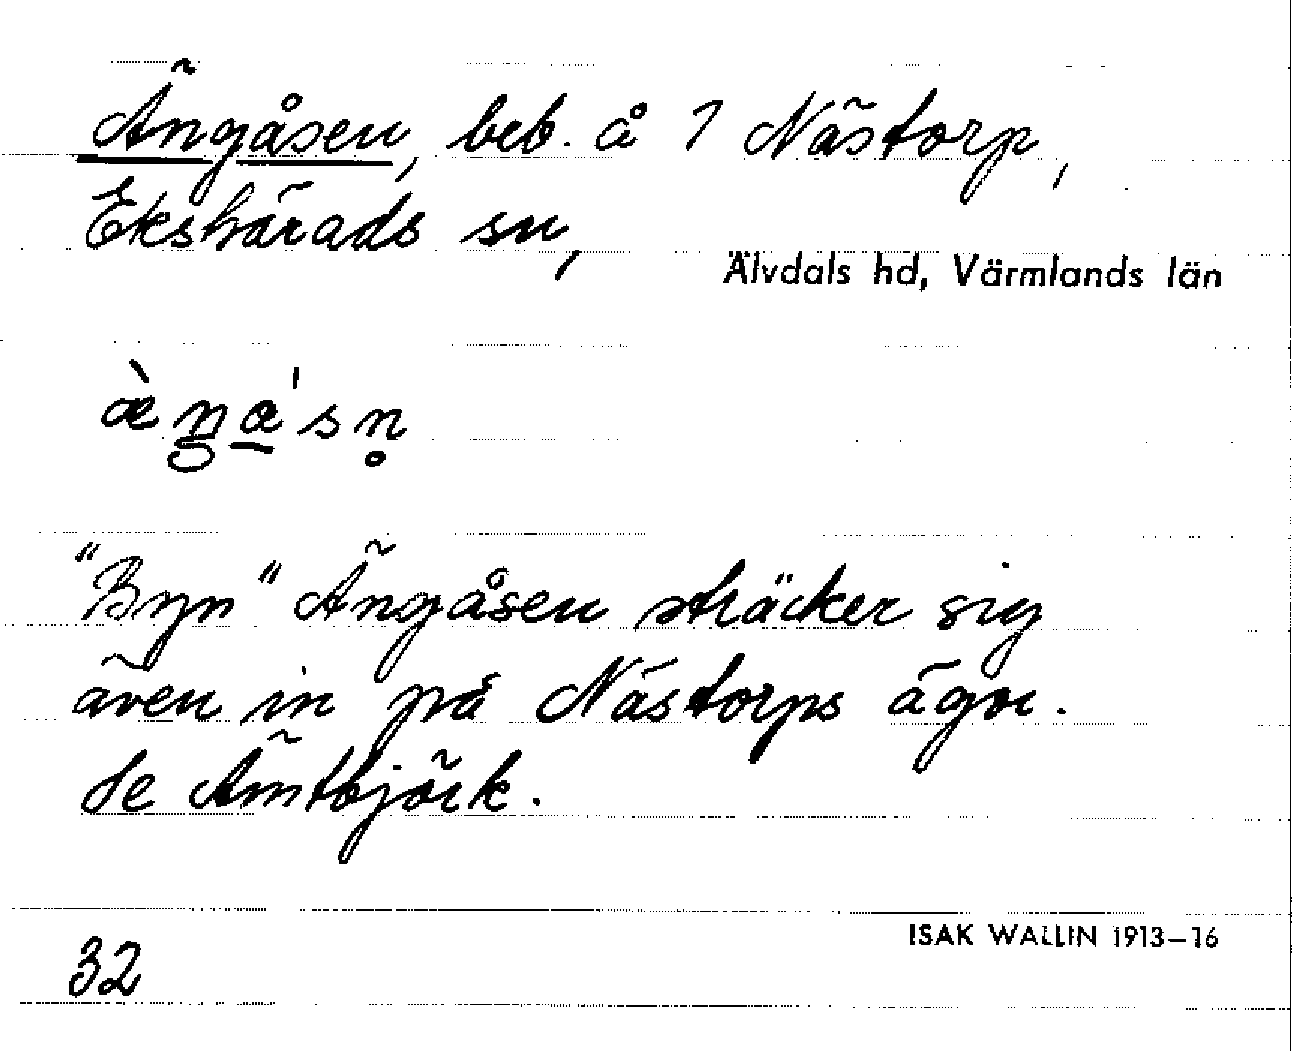 Ängåsen, beb. å 1 Nästorp,
Ekshärads sn,
Älvdals hd, Värmlands län
"Byn" Ängåsen sträcker sig
även in på Nästorps ägor.
Se Ämtbjörk.
ISAK WALLIN 1913–16
32